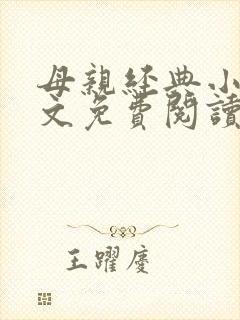 母親經典小
文免費閱讀
王躍慶